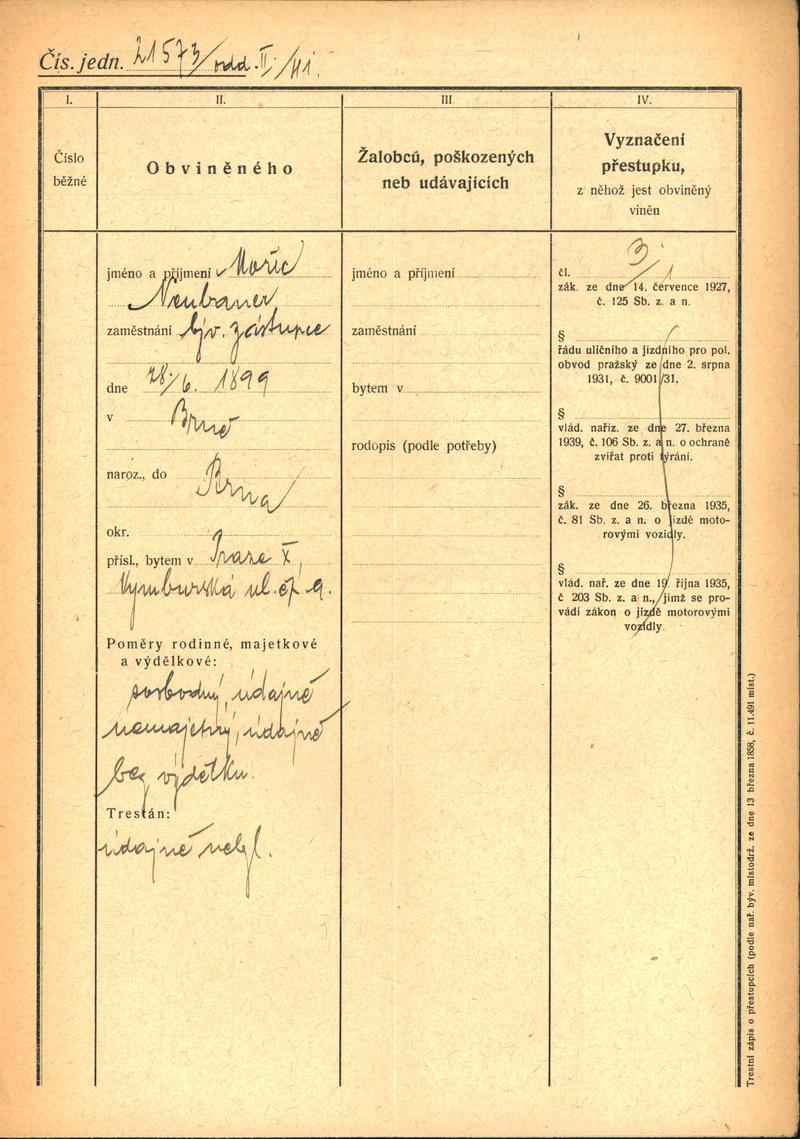 Čís. jedn. 21573/odd. II./41.
I.
Číslo
běžné
II.
Obviněného
III.
Žalobců, poškozených
neb udávajících
IV.
Vyznačení
přestupku,
z něhož jest obviněný
viněn
jméno a příjmení Mořic
Neubauer
zaměstnání býv. zástupce
dne 28/6. 1899
v Brně
naroz., do Brna
okr.
přísl., bytem v Praze X,
Nymburská ul. čp 9.
Poměry rodinné, majetkové
a výdělkové:
svobodný, údajně
nemajetný, údajně
bez výdělku.
Trestán:
údajně
jméno a příjmení
zaměstnání
bytem v
rodopis (podle potřeby)
čl. 3/1
zák. ze dne 14. července 1927,
č. 125 Sb. z. a n.
§
řádu uličního a jízdního pro pol.
obvod pražský ze dne 2. srpna
1931, č. 9001/31.
§
vlád. naříz. ze dne 27. března
1939, č. 106 Sb. z. a n. o ochraně
zvířat proti týrání.
§
zák. ze dne 26. března 1935,
č. 81 Sb. z. a n. o jízdě moto-
rovými vozidly.
§
vlád. nař. ze dne 19. října 1935,
č 203 Sb. z. a n., jímž se pro-
vádí zákon o jízdě motorovými
vozidly.
Trestní zápis o přestupcích (podle nař. býv. místodrž. ze dne 13 března 1858, č. 11.491 míst.)